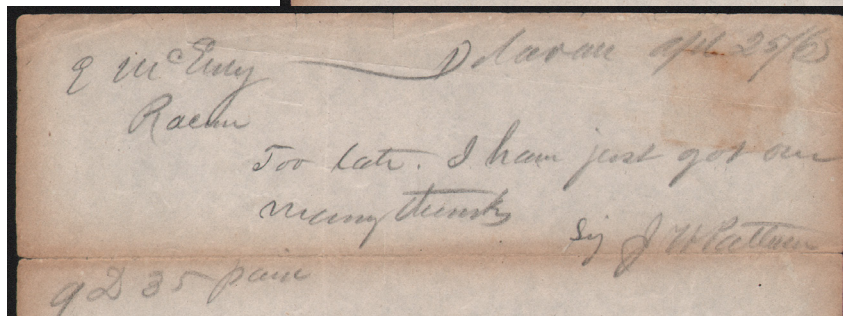 E McEvry Delavan Apl 25/65
Racin
Too late. I have just got one
many thanks
Sig J W Pattun
9 D 35 paid